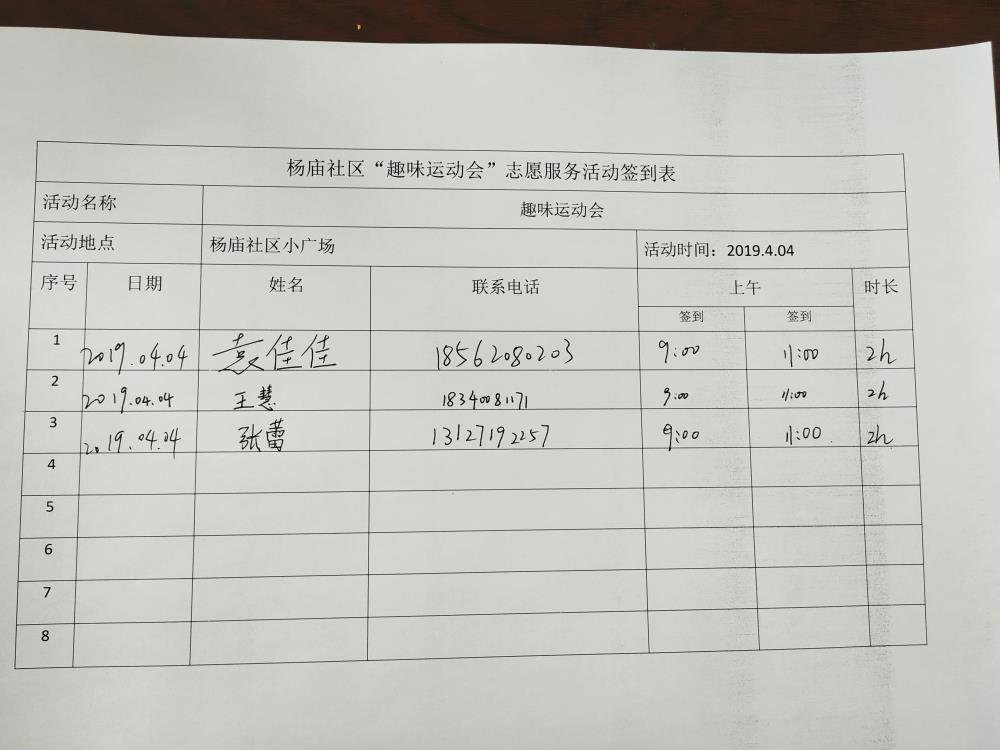 杨庙社区“趣味运动会”志愿服务活动签到表
活动名称 趣味运动会
活动地点 杨庙社区小广场 活动时间：2019.4.04
序号 日期 姓名 联系电话 上午 时长
签到 签到
1 2019.04.04 袁佳佳 18562080203 9:00 11:00 2h
2 2019.04.04 王慧 18340081171 9:00 11:00 2h
3 2019.04.04 张蕾 13127192257 9:00 11:00 2h
4
5
6
7
8